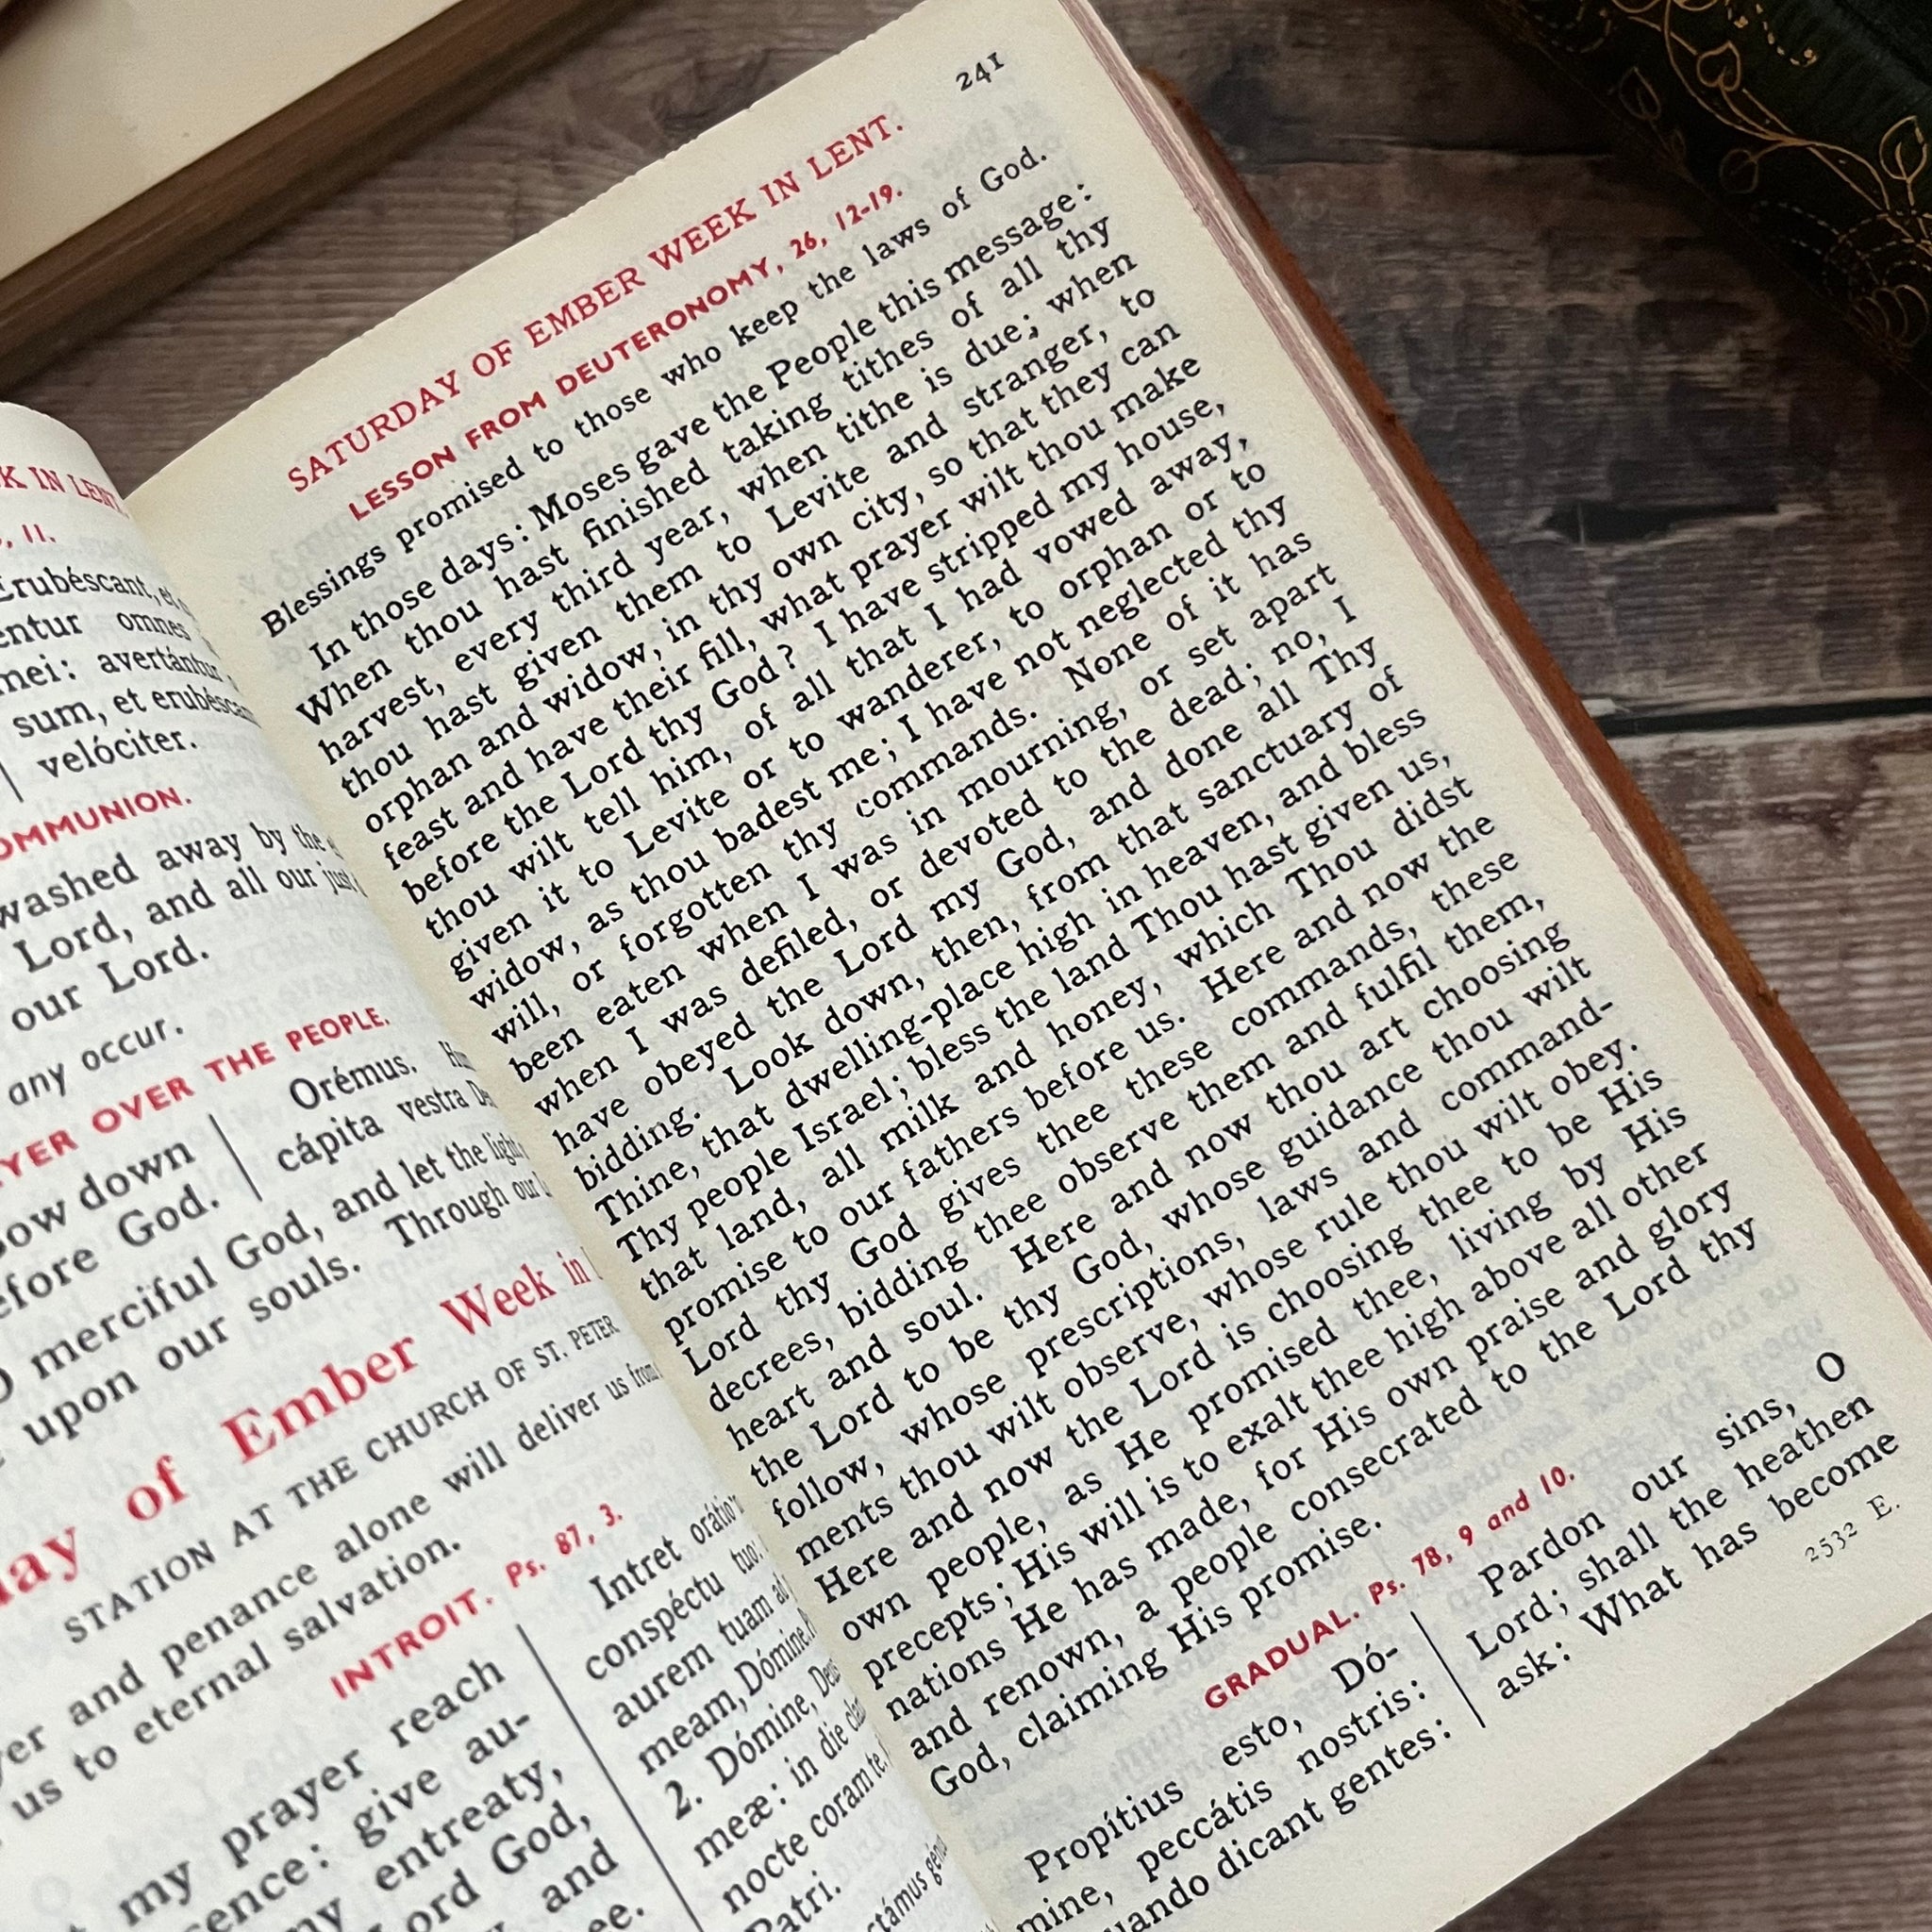 K IN LENT
, 11.
Erubéscant, et
entur omnes
mei: avertántur
sum, et erubéscant
velóciter.
OMMUNION.
washed away by the
Lord, and all our just
our Lord.
any occur.
YER OVER THE PEOPLE.
bow down
before God.
Orémus.
cápita vestra
merciful God, and let the light
upon our souls. Through our
of Ember Week in
STATION AT THE CHURCH OF ST. PETER
and penance alone will deliver us from
us to eternal salvation.
INTROIT. Ps. 87, 3.
my prayer reach
give au-
entreaty,
Lord God,
and
Intret orátio
conspéctu tuo:
aurem tuam ad
meam, Dómine.
2. Dómine, Deus
meæ: in die
nocte coram te.
Patri.
241
SATURDAY OF EMBER WEEK IN LENT.
LESSON FROM DEUTERONOMY, 26, 12-19.
Blessings promised to those who keep the laws of God.
In those days: Moses gave the People this message:
When thou hast finished taking tithes of all thy
harvest, every third year, when tithe is due; when
thou hast given them to Levite and stranger, to
orphan and widow, in thy own city, so that they can
feast and have their fill, what prayer wilt thou make
before the Lord thy God? I have stripped my house,
thou wilt tell him, of all that I had vowed away,
given it to Levite or to wanderer, to orphan or to
widow, as thou badest me; I have not neglected thy
will, or forgotten thy commands. None of it has
been eaten when I was in mourning, or set apart
when I was defiled, or devoted to the dead; no, I
have obeyed the Lord my God, and done all Thy
bidding. Look down, then, from that sanctuary of
Thine, that dwelling-place high in heaven, and bless
Thy people Israel; bless the land Thou hast given us,
that land, all milk and honey, which Thou didst
promise to our fathers before us. Here and now the
Lord thy God gives thee these commands, these
decrees, bidding thee observe them and fulfil them,
heart and soul. Here and now thou art choosing
the Lord to be thy God, whose guidance thou wilt
follow, whose prescriptions, laws and command-
ments thou wilt observe, whose rule thou wilt obey.
Here and now the Lord is choosing thee to be His
own people, as He promised thee, living by His
precepts; His will is to exalt thee high above all other
nations He has made, for His own praise and glory
and renown, a people consecrated to the Lord thy
God, claiming His promise.
GRADUAL. Ps. 78, 9 and 10.
Propítius esto, Dó-
mine, peccátis nostris:
quando dicant gentes:
Pardon our sins, O
Lord; shall the heathen
ask: What has become
2532 E.